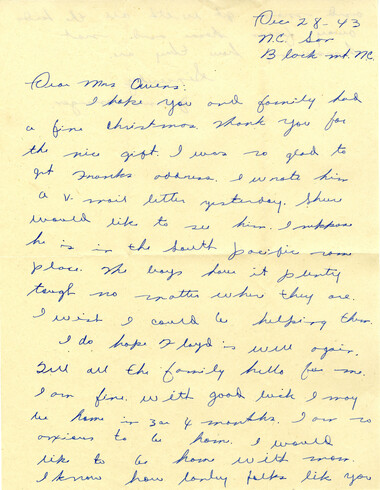 Dec 28-43
N.C. San
Black mt. N.C.
Dear Mrs Owens:
I hope you and family had
a fine Christmas. Thank you for
the nice gift. I was so glad to
get Franks address. I wrote him
a V. mail letter yesterday. Sure
would like to see him. I suppose
he is in the South Pacific some
place. The boys have it plenty
tough no matter where they are.
I wish I could be helping them.
I do hope Floyd is well again.
Tell all the family hello for me.
I am fine. With good luck I may
be home in 3 or 4 months. I am so
anxious to be home. I would
like to be home with mom.
I know how lonely folks like you